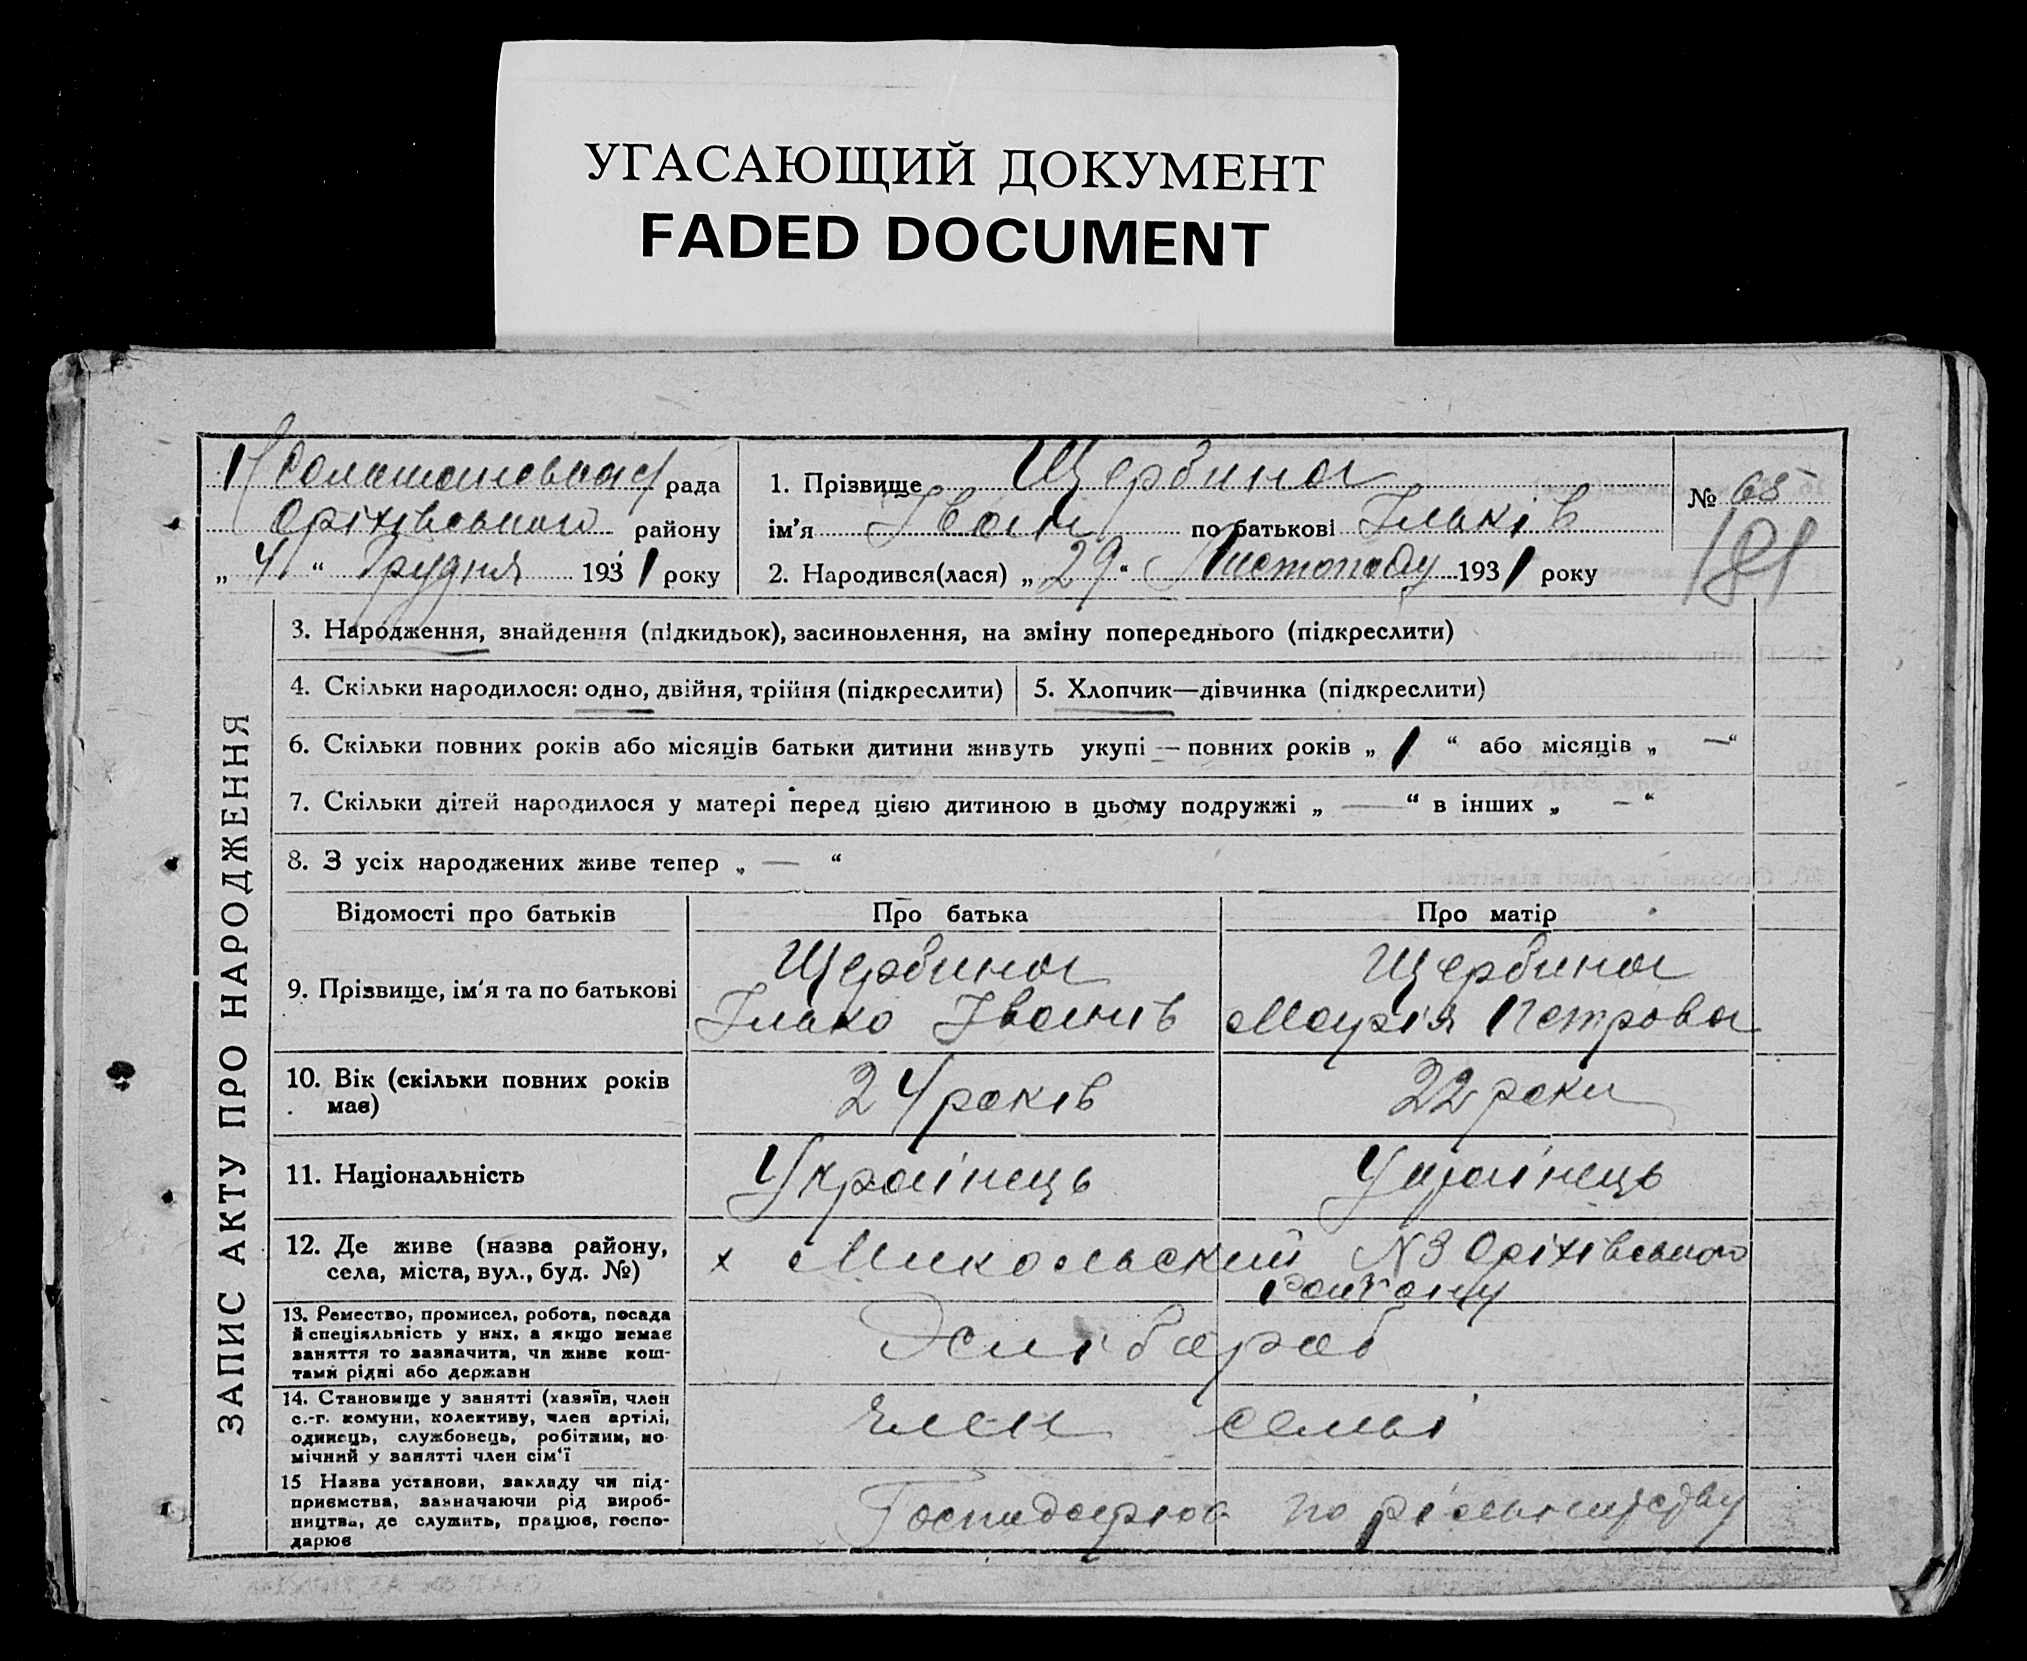 УГАСАЮЩИЙ ДОКУМЕНТ
FADED DOCUMENT
рада
Оріхівського району
„ 4 “ Грудня 1931 року
1. Прізвище Щербина
ім’я Іван по батькові Ільків
2. Народився(лася) „ 29 “ Листопаду 1931 року
№ 65
181
ЗАПИС АКТУ ПРО НАРОДЖЕННЯ
3. Народження, знайдення (підкидьок), засиновлення, на зміну попереднього (підкреслити)
4. Скільки народилося: одно, двійня, трійня (підкреслити)
5. Хлопчик—дівчинка (підкреслити)
6. Скільки повних років або місяців батьки дитини живуть укупі — повних років „ 1 “ або місяців „ — “
7. Скільки дітей народилося у матері перед цією дитиною в цьому подружжі „ — “ в інших „ — “
8. З усіх народжених живе тепер „ — “
Відомості про батьків
Про батька
Про матір
9. Прізвище, ім’я та по батькові
Щербина
Ілько Іванів
Щербина
Марія Петрова
10. Вік (скільки повних років
має)
24 років
22 роки
11. Національність
Українець
Українець
12. Де живе (назва району,
села, міста, вул., буд. №)
х Микольский №3 Оріхівського
району
13. Ремество, промисел, робота, посада
й спеціяльність у них, а якщо немає
заняття то зазначити, чи живе кош-
тами рідні або держави
Хлібороб
14. Становище у занятті (хазяїн, член
с.-г. комуни, колективу, член артілі,
одинець, службовець, робітник, по-
мічний у занятті член сім’ї
член семьі
15 Назва установи, закладу чи під-
приємства, зазначаючи рід вироб-
ництва, де служить, працює, госпо-
дарює
по